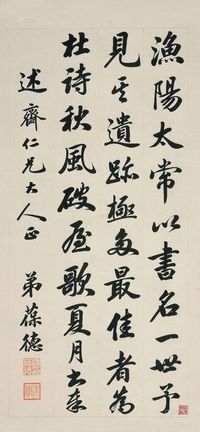 漁陽太常以書名一世予
見其遺跡極多最佳者為
杜詩秋風破屋歌夏月書
述齋仁兄大人正
弟葆德